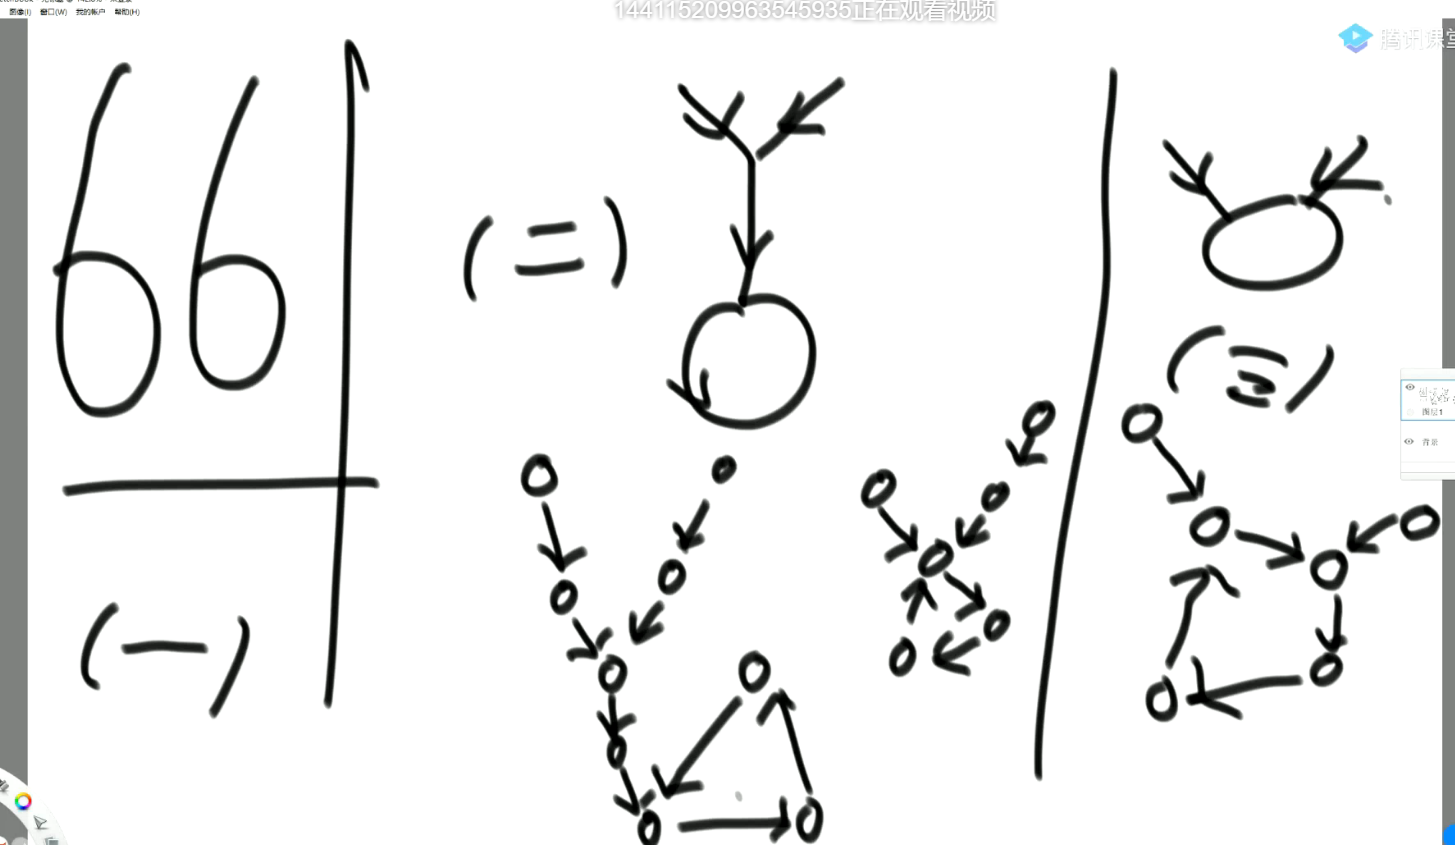 图像(I) 窗口(W) 我的帐户 帮助(H)
144115209963545935正在观看视频
腾讯课堂
66
(一)
(二)
(三)
图层1
背景